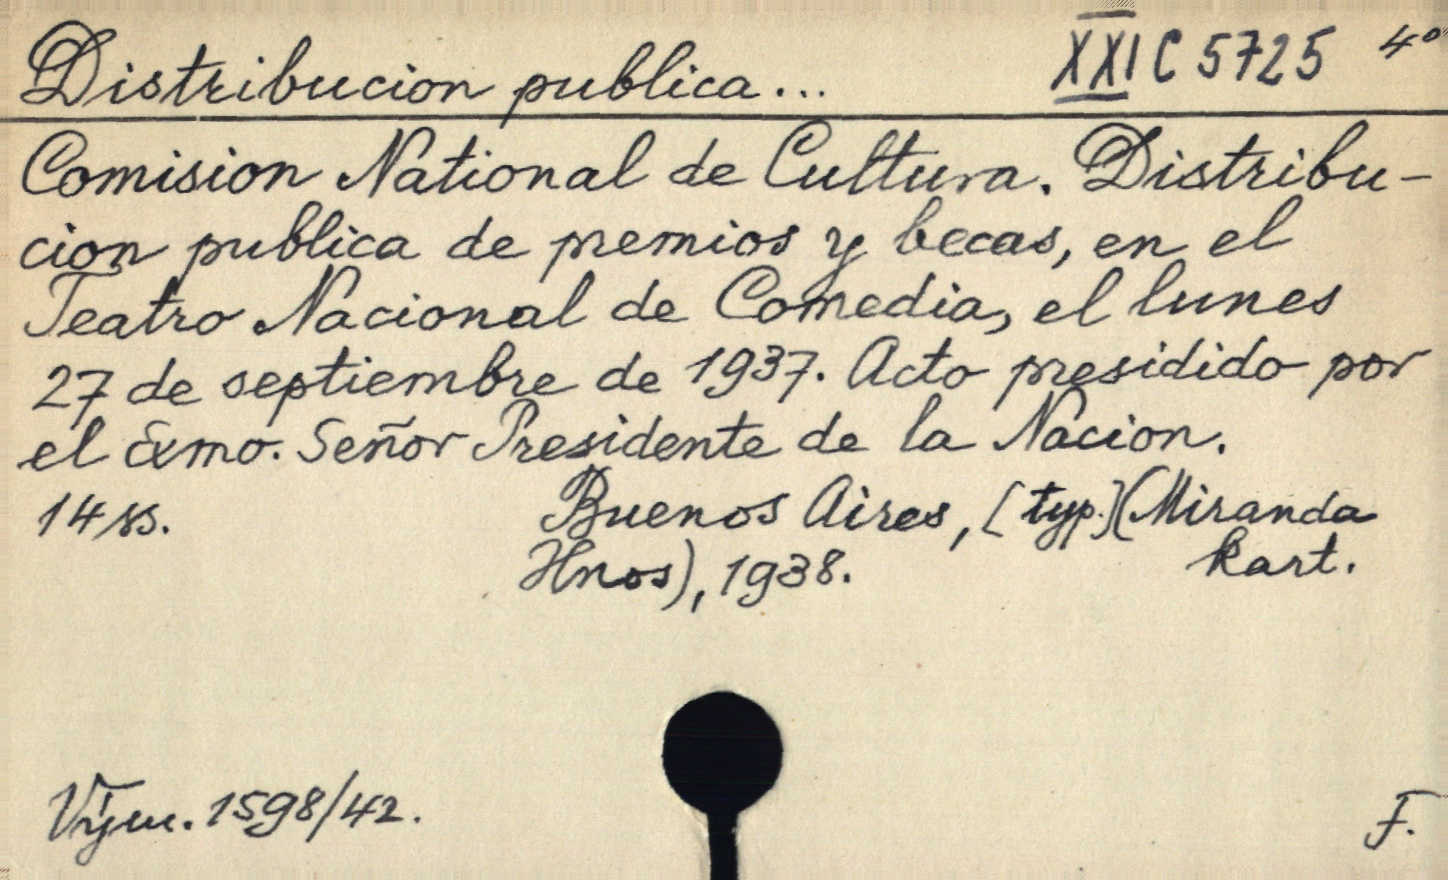 Distribucion publica... XXI C 5725 4°
Comision National de Cultura. Distribu-
cion publica de premios y becas, en el
Teatro Nacional de Comedia, el lunes
27 de septiembre de 1937. Acto presidido por
el Exmo. Señor Presidente de la Nacion.
14 ss. Buenos Aires, [typ.](Miranda
Hnos), 1938. kart.
Vým. 1598/42. F.